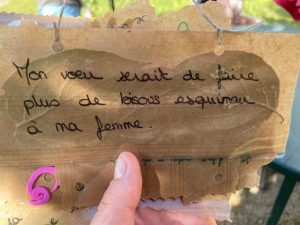 Mon voeu serait de faire
plus de bisous esquimau
à ma femme.